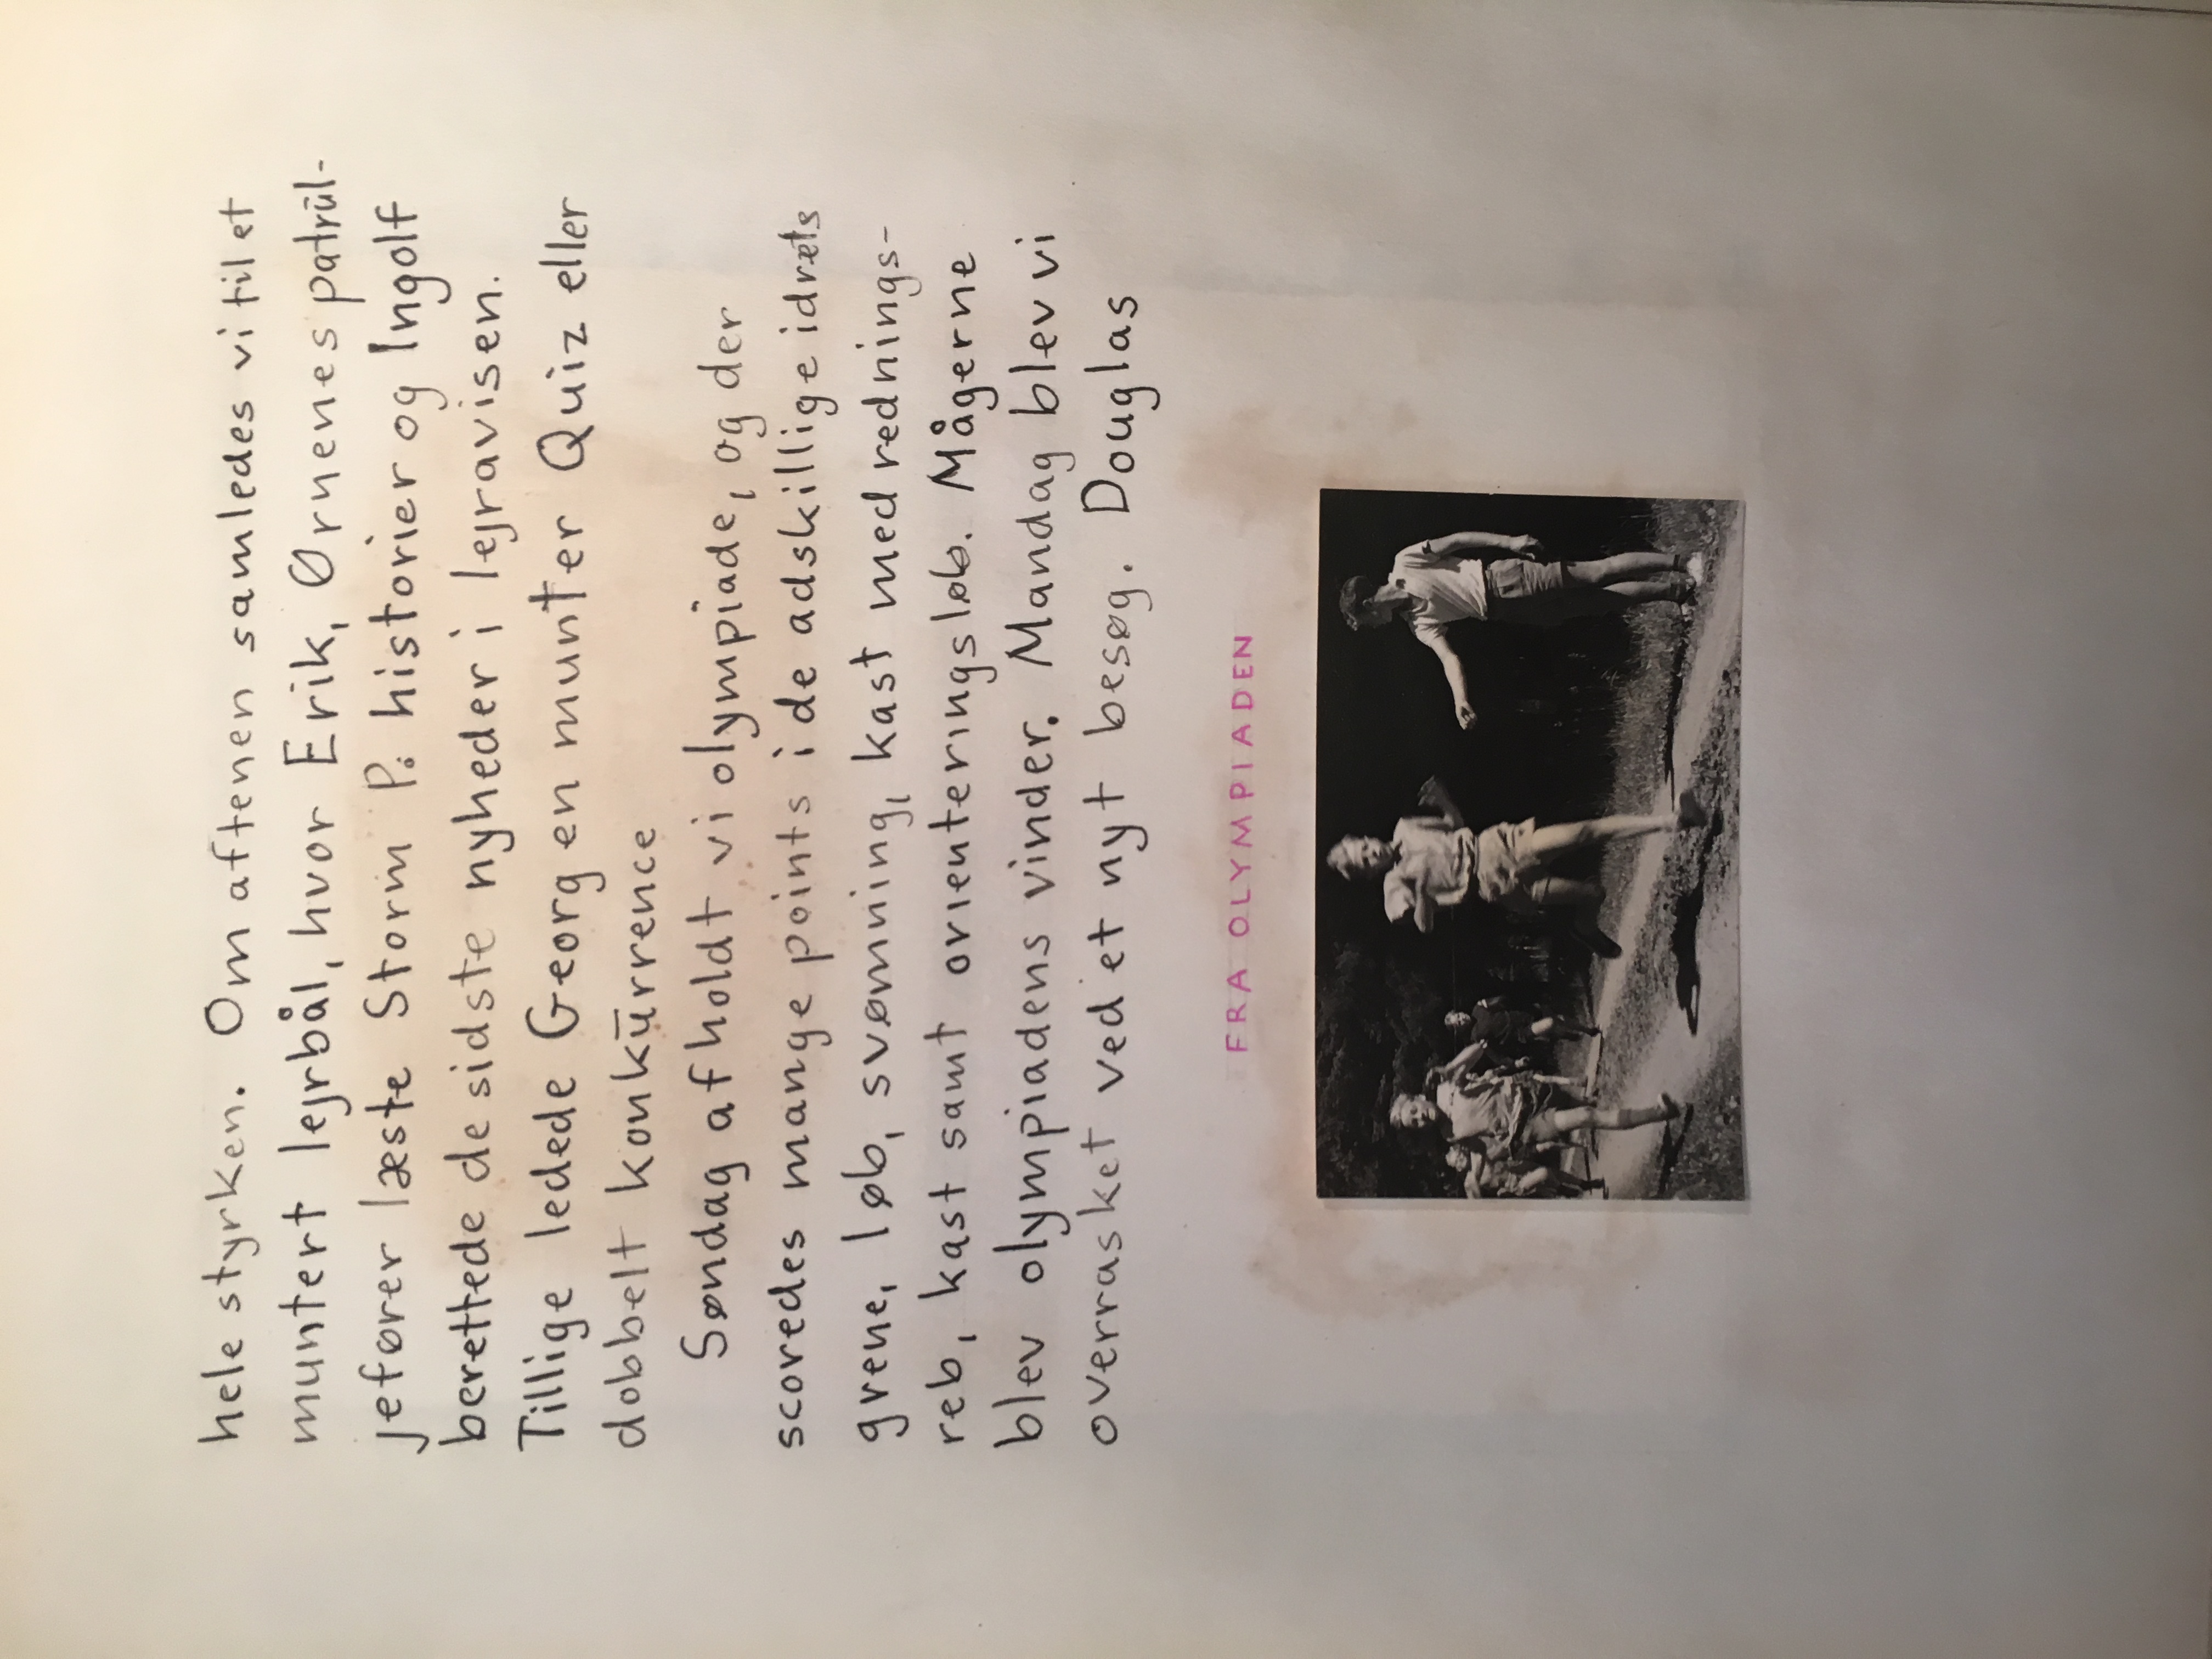 hele styrken. Om aftenen samledes vi til et
muntert lejrbål, hvor Erik, Ørnenes patrūl-
jefører læste Storm P. historier og Ingolf
berettede de sidste nyheder i lejravisen.
Tillige ledede Georg en munter Quiz eller
dobbelt konkūrrence
Søndag afholdt vi olympiade, og der
scoredes mange points i de adskillige idræts
grene, løb, svømning, kast med rednings-
reb, kast samt orienteringsløb. Mågerne
blev olympiadens vinder. Mandag blev vi
overrasket ved et nyt besøg. Douglas
FRA OLYMPIADEN